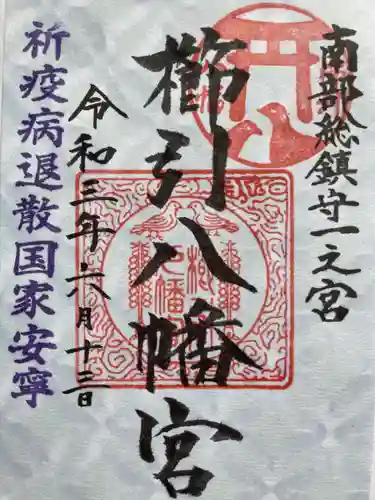 南部総鎮守一之宮
櫛引八幡宮
令和三年六月十三日
祈疫病退散国家安寧